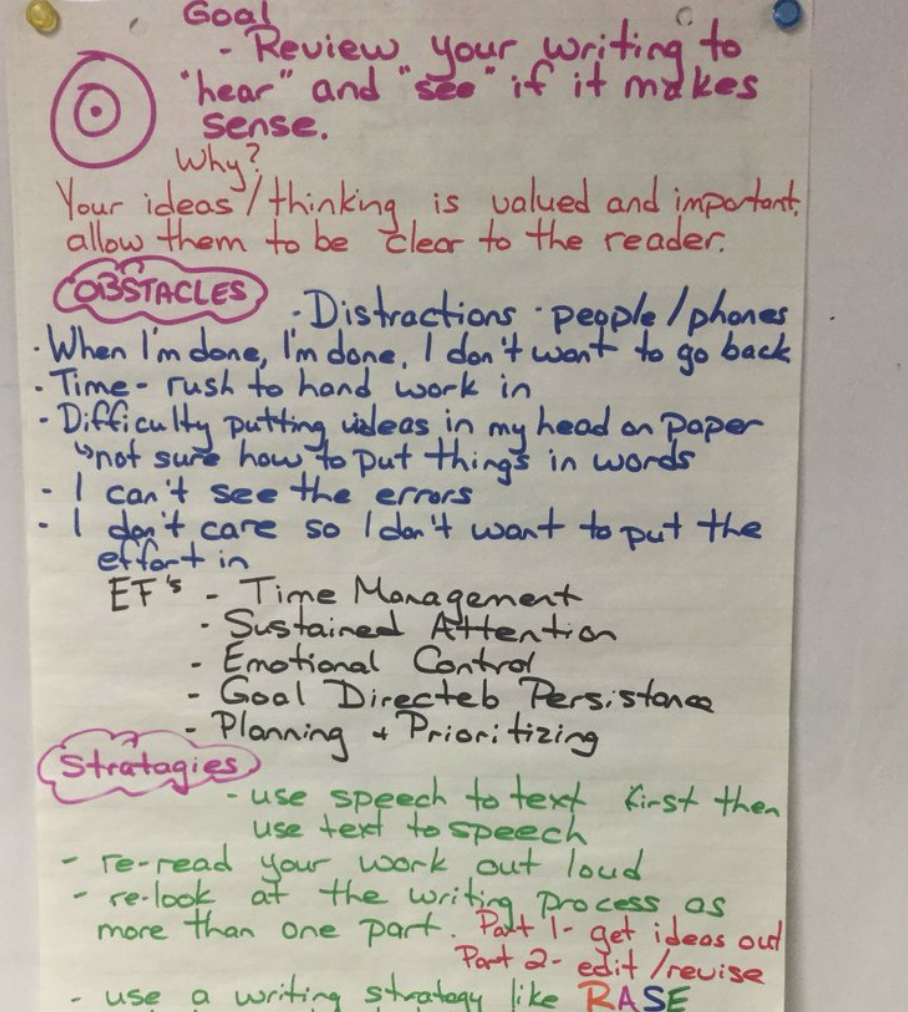 Goal
- Review your writing to
"hear" and "see" if it makes
sense.
Why?
Your ideas/thinking is valued and important,
allow them to be clear to the reader.
OBSTACLES
- Distractions - people/phones
- When I'm done, I'm done, I don't want to go back
- Time - rush to hand work in
- Difficulty putting ideas in my head on paper
↳ not sure how to put things in words
- I can't see the errors
- I don't care so I don't want to put the
effort in
EF's - Time Management
- Sustained Attention
- Emotional Control
- Goal Directeb Persistance
- Planning + Prioritizing
Stratagies
- use speech to text first then
use text to speech
- re-read your work out loud
- re-look at the writing process as
more than one part. Part 1- get ideas out
Part 2- edit/revise
- use a writing stratagy like RASE